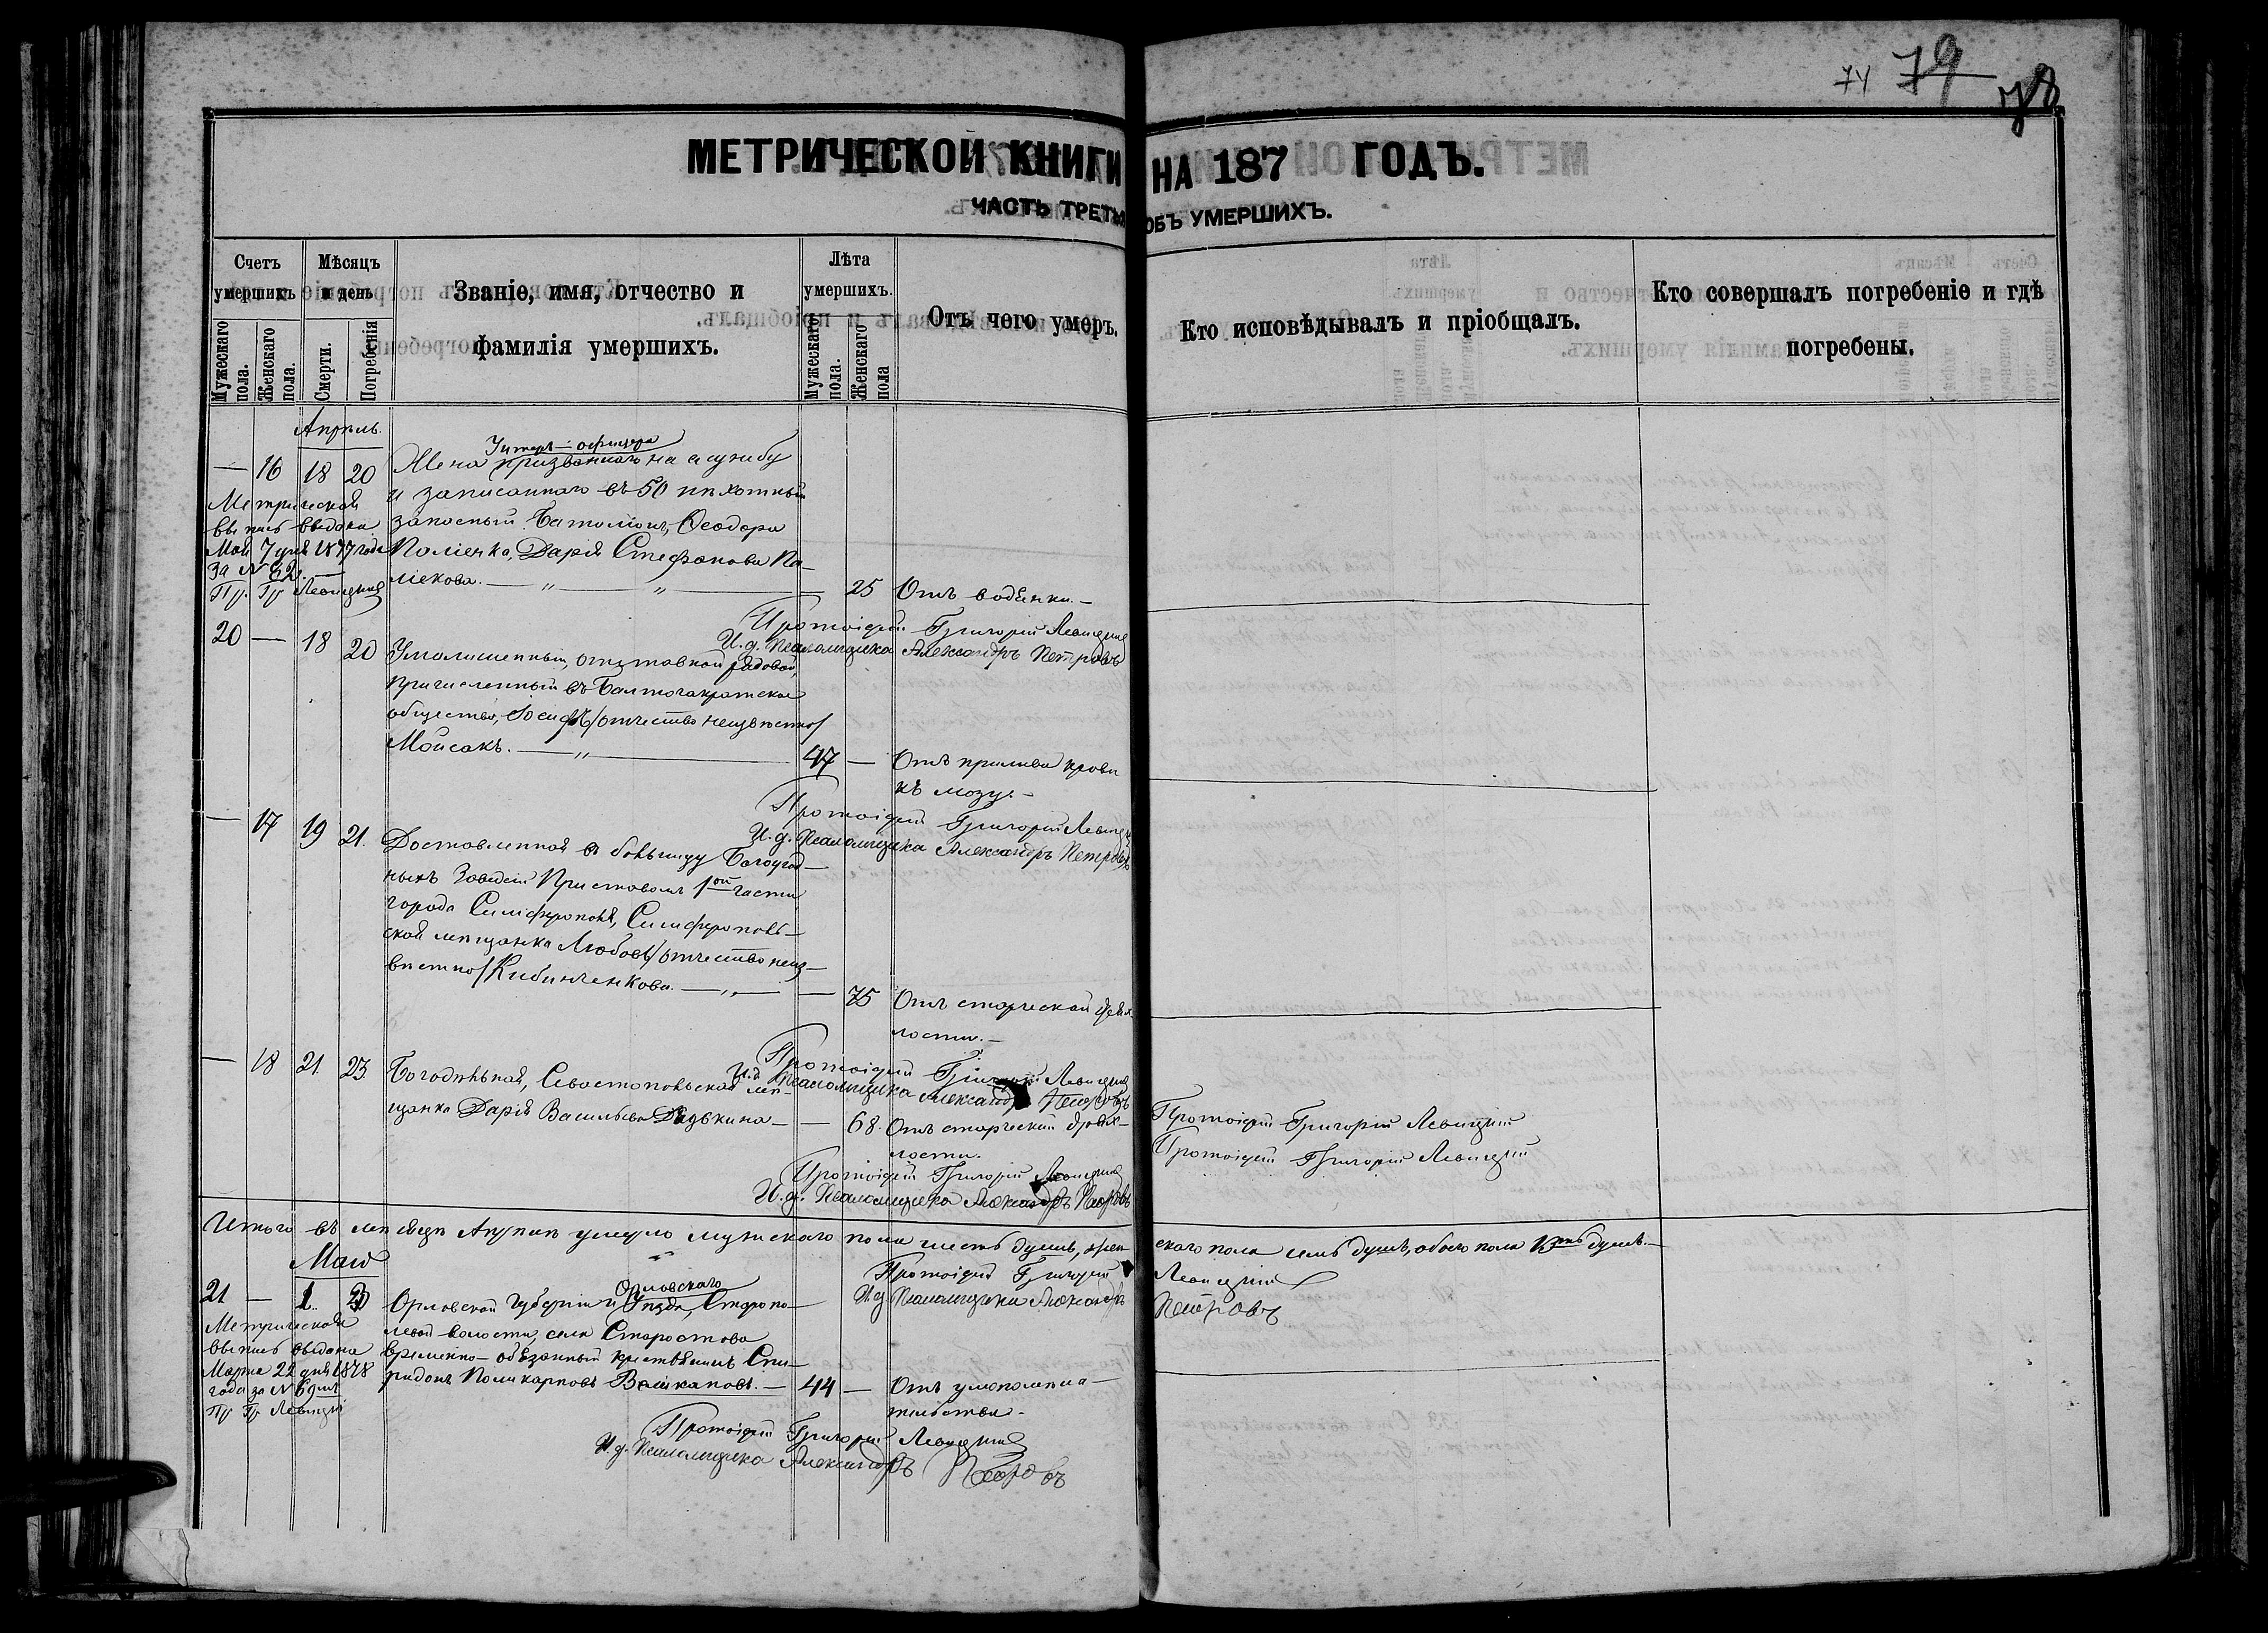 74 79 78
МЕТРИЧЕСКОЙ КНИГИ НА 187 ГОДЪ.
ЧАСТЬ ТРЕТЬЯ ОБЪ УМЕРШИХЪ.
Счетъ умершихъ
Мужескаго пола.
Женскаго пола.
Мѣсяцъ и день
Смерти.
Погребенія
Званіе, имя, отчество и
фамилія умершихъ.
Лѣта умершихъ.
Мужескаго пола.
Женскаго пола
Отъ чего умеръ.
Кто исповѣдывалъ и пріобщалъ.
Кто совершалъ погребеніе и гдѣ
погребены.
Апрѣль.
— 16 18 20
Унтеръ-офицера
Жена призваннаго на службу
и записаннаго въ 50 пѣхотный
запасный баталіонъ, Ѳеодора
Паліенка, Дарія Стефанова Па-
ліенкова. — 25 Отъ водянки.—
Метрическая
выпись выдана
Мая 7 дня 1877 года
За № 82.
Пр. Гр. Левицкій
Протоіерей Григорій Левицкій
И. д. Псаломщика Александръ Петровъ
20 — 18 20
Умалишенный, отставной рядовой,
причисленный въ
общество, Іосифъ /отчество неизвѣстно/
Мойсакъ. 47 — Отъ прилива крови
къ мозгу.—
Протоіерей Григорій Левицкій
И. д. Псаломщика Александръ Петровъ
— 17 19 21.
Доставленная въ больницу Богоугод-
ныхъ Заведеній Приставомъ 1ой части
города Симферополя, Симферополь-
ская мѣщанка Любовь /отчество неиз-
вѣстно/ Кибинченкова. — 75 Отъ старческой дрях-
лости.—
Протоіерей Григорій Левицкій
И. д. Псаломщика Александръ Петровъ
— 18 21. 23.
Богодѣльная, Севастопольская мѣ-
щанка Дарія Васильева Дядькина — — 68. Отъ старческой дрях-
лости.
Протоіерей Григорій Левицкій
Протоіерей Григорій Левицкій
Протоіерей Григорій Левицкій
И. д. Псаломщика Александръ Петровъ
Итого въ мѣсяцѣ Апрѣлѣ умерло мужскаго пола шесть душъ, жен-
скаго пола семь душъ, обоего пола 13ть душъ.—
Протоіерей Григорій Левицкій
И. д. Псаломщика Александръ Петровъ
Май
21 — 1. 3
Орловскаго
Орловской губерніи и Уѣзда,
волости, села
временно-обязанный крестьянинъ Спи-
ридонъ Поликарповъ Великановъ.— 44 — Отъ умопомѣша-
тельства.
Метрическая
выпись выдана
Марта 22 дня 1878
года за № 69мъ
Пр Гр Левицкій
Протоіерей Григорій Левицкій
И. д. Псаломщика Александръ Петровъ